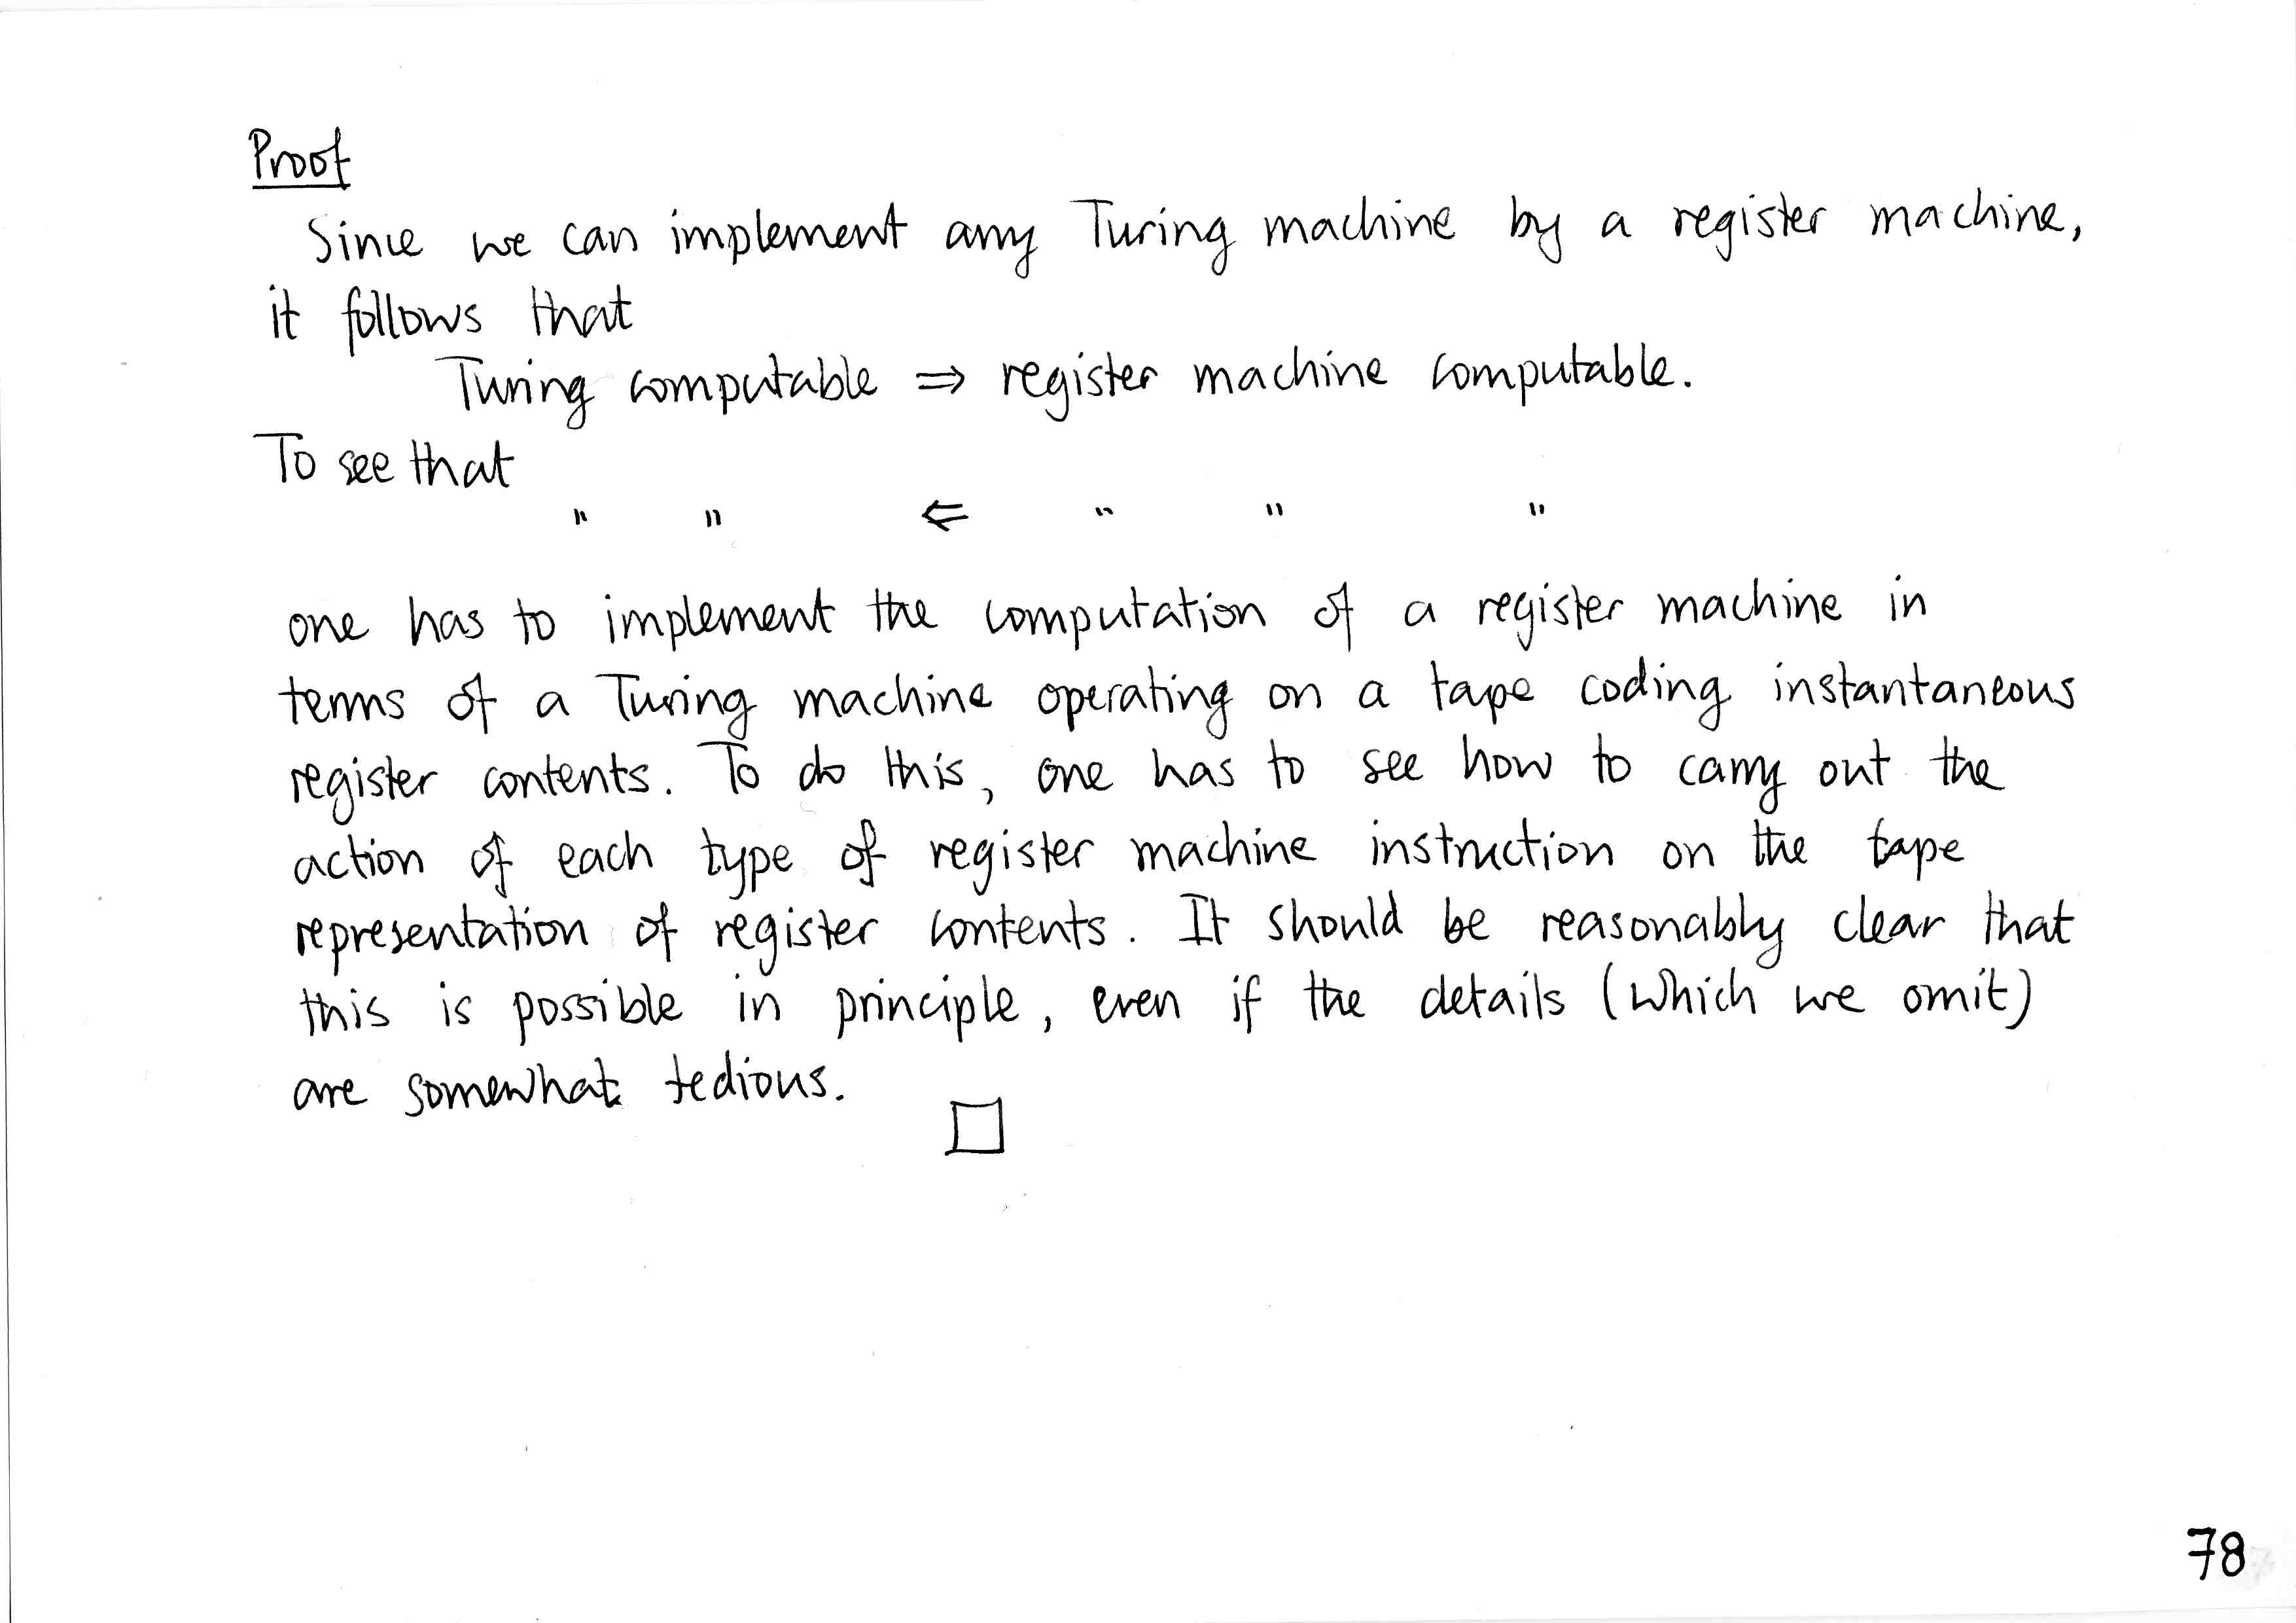 Proof
Since we can implement any Turing machine by a register machine,
it follows that
Turing computable ⇒ register machine computable.
To see that
" " ⇐ " " "
one has to implement the computation of a register machine in
terms of a Turing machine operating on a tape coding instantaneous
register contents. To do this, one has to see how to carry out the
action of each type of register machine instruction on the tape
representation of register contents. It should be reasonably clear that
this is possible in principle, even if the details (which we omit)
are somewhat tedious. □
78